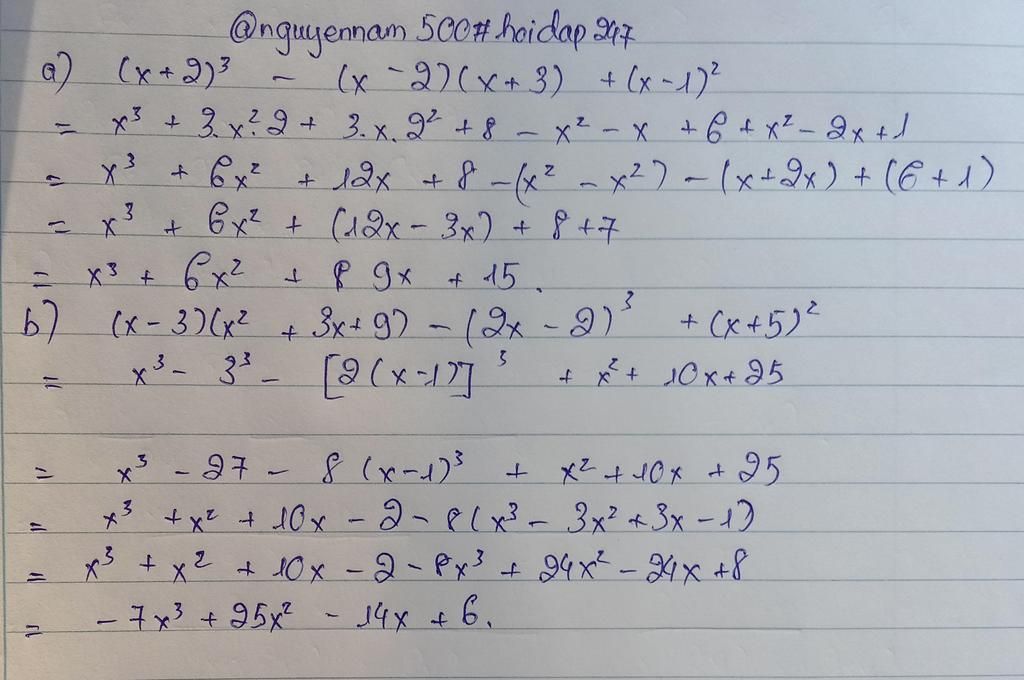 @nguyennam500#hoidap247
a) (x+2)³ - (x-2)(x+3) + (x-1)²
= x³ + 3.x².2 + 3.x.2² + 8 - x² - x + 6 + x² - 2x + 1
= x³ + 6x² + 12x + 8 - (x² - x²) - (x+2x) + (6+1)
= x³ + 6x² + (12x - 3x) + 8 + 7
= x³ + 6x² + 9x + 15.
b) (x-3)(x² + 3x+9) - (2x-2)³ + (x+5)²
= x³ - 3³ - [2(x-1)]³ + x² + 10x + 25
= x³ - 27 - 8(x-1)³ + x² + 10x + 25
= x³ + x² + 10x - 2 - 8(x³ - 3x² + 3x - 1)
= x³ + x² + 10x - 2 - 8x³ + 24x² - 24x + 8
= -7x³ + 25x² - 14x + 6.